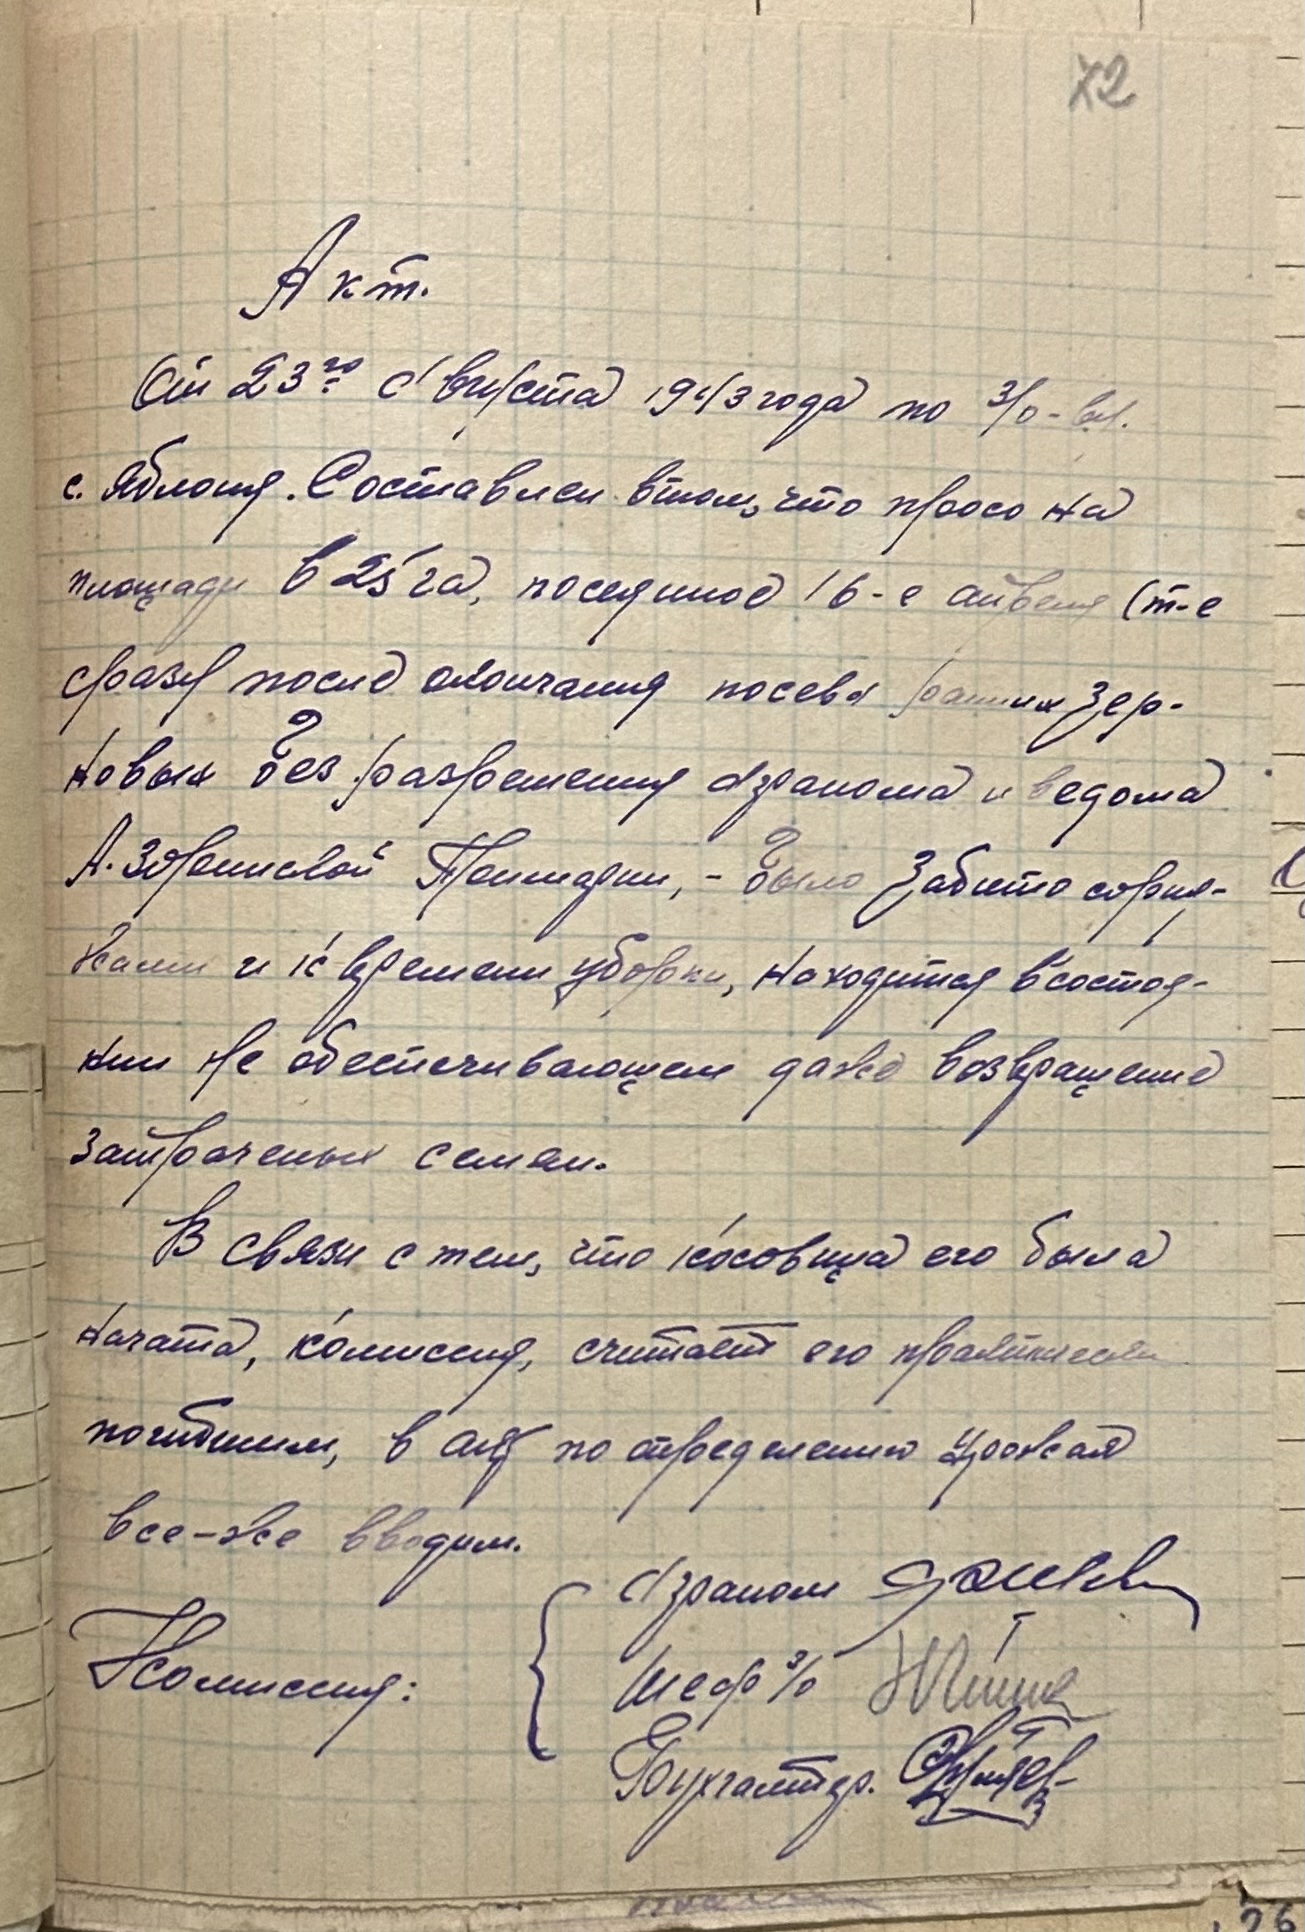 72
Акт.
От 23го Августа 1943 года по з/о-
с. Яблоня. Составлен втом, что просо на
площади в 25 га, посеяное 16-е апреля (т-е
сразу после окончания посева ранних зер-
новых без разрешения Агранома и ведома
А. , - было забито сорня-
ками и к времени уборки, находится всостоя-
нии не обеспечивающем даже возвращение
затраченых семян.
В связи с тем, что косовица его была
начата, комиссия, считает его практически
погибшим, в акт по определению урожая
все-же вводим.
Комиссия:
Аграном
Шеф з/о
Бухгалтер.
26